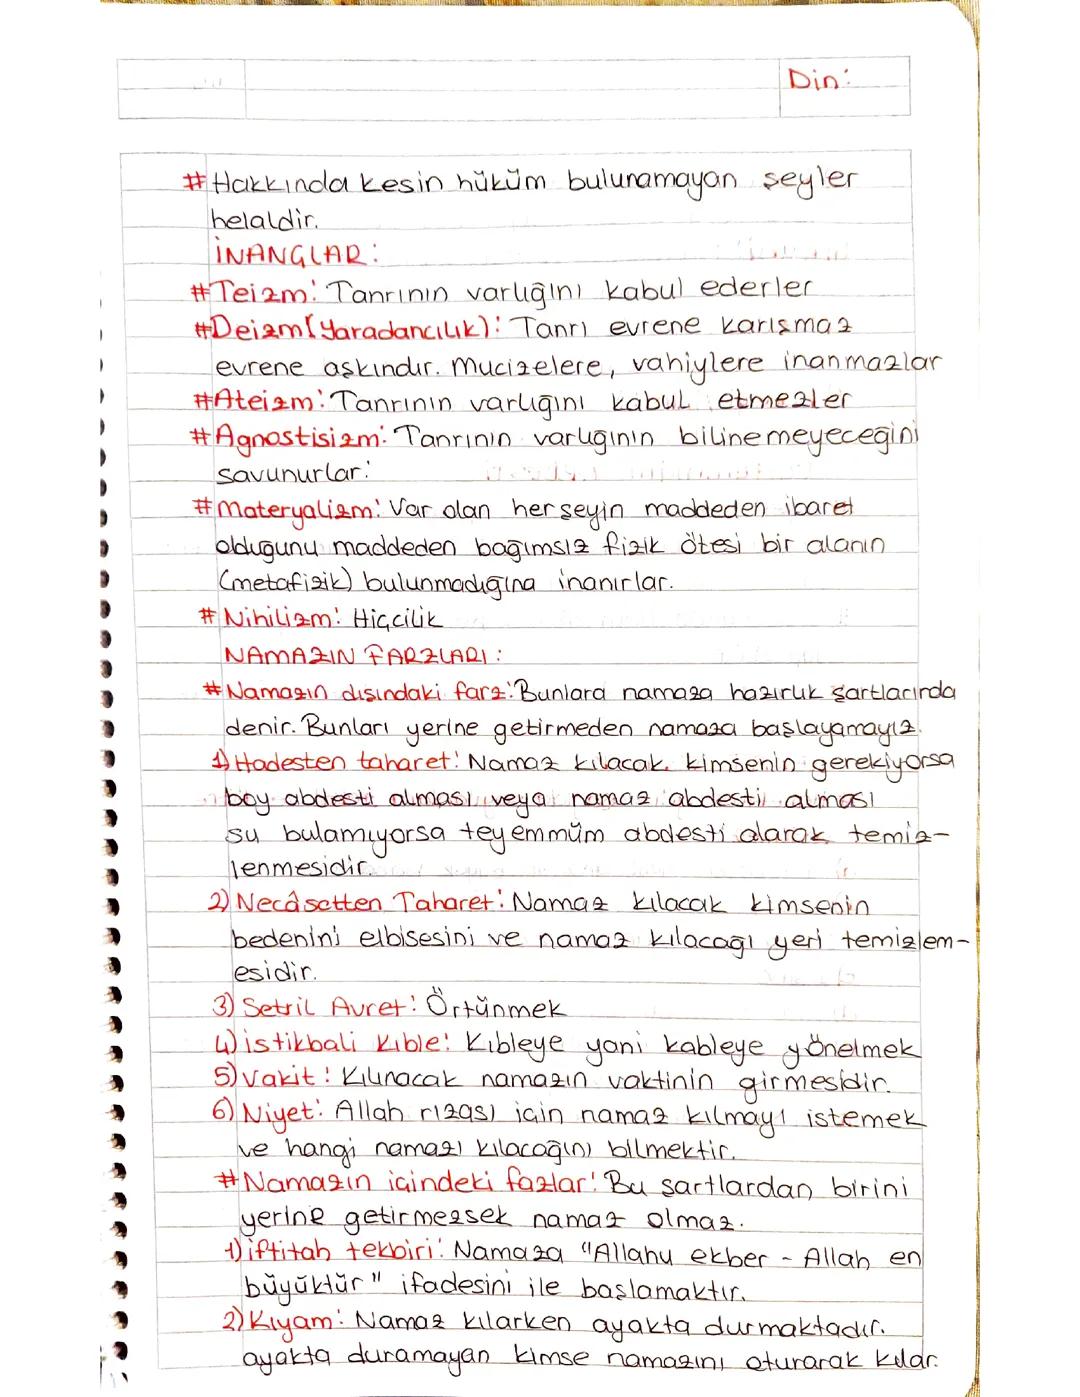 Din:
# Hakkında kesin hüküm bulunamayan şeyler
helaldir.
İNANÇLAR:
# Teizm: Tanrının varlığını kabul ederler
# Deizm (Yaradancılık): Tanrı evrene karışmaz
evrene aşkındır. Mucizelere, vahiylere inanmazlar
# Ateizm: Tanrının varlığını kabul etmezler
# Agnostisizm: Tanrının varlığının bilinemeyeceğini
savunurlar.
# Materyalizm: Var olan herşeyin maddeden ibaret
olduğunu maddeden bağımsız fizik ötesi bir alanın
(metafizik) bulunmadığına inanırlar.
# Nihilizm: Hiççilik
NAMAZIN FARZLARI:
# Namazın dışındaki farz: Bunlara namaza hazırlık şartlarında
denir. Bunları yerine getirmeden namaza başlayamayız.
1) Hadesten taharet: Namaz kılacak kimsenin gerekiyorsa
boy abdesti alması veya namaz abdesti alması
su bulamıyorsa teyemmüm abdesti alarak temiz-
lenmesidir.
2) Necâsetten Taharet: Namaz kılacak kimsenin
bedenini elbisesini ve namaz kılacağı yeri temizlem-
esidir.
3) Setril Avret: Örtünmek
4) istikbali Kıble: Kıbleye yani kableye yönelmek
5) Vakit: Kılınacak namazın vaktinin girmesidir.
6) Niyet: Allah rızası için namaz kılmayı istemek
ve hangi namazı kılacağını bilmektir.
# Namazın içindeki fazlar: Bu şartlardan birini
yerine getirmezsek namaz olmaz.
1) iftitah tekbiri: Namaza "Allahu ekber - Allah en
büyüktür" ifadesini ile başlamaktır.
2) Kıyam: Namaz kılarken ayakta durmaktadır.
ayakta duramayan kimse namazını oturarak kılar.